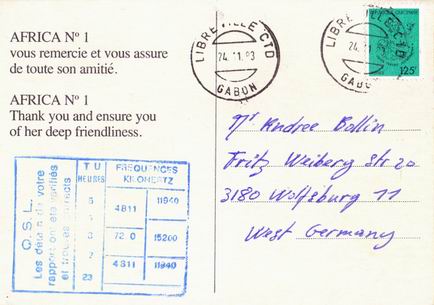 AFRICA Nº 1
vous remercie et vous assure
de toute son amitié.
AFRICA Nº 1
Thank you and ensure you
of her deep friendliness.
LIBREVILLE CTD
24.11.83
GABON
LIBREVILLE CTD
24.11
GABON
125F
Mr Andree Bollin
Fritz Weiberg Str 20
3180 Wolfsburg 11
West Germany
Q.S.L.
Les détails de votre
rapport ont été vérifiés
et trouvés corrects
T U
HEURES
FREQUENCES
KILOHERTZ
5
4811
11940
7
15200
4811
11940
23